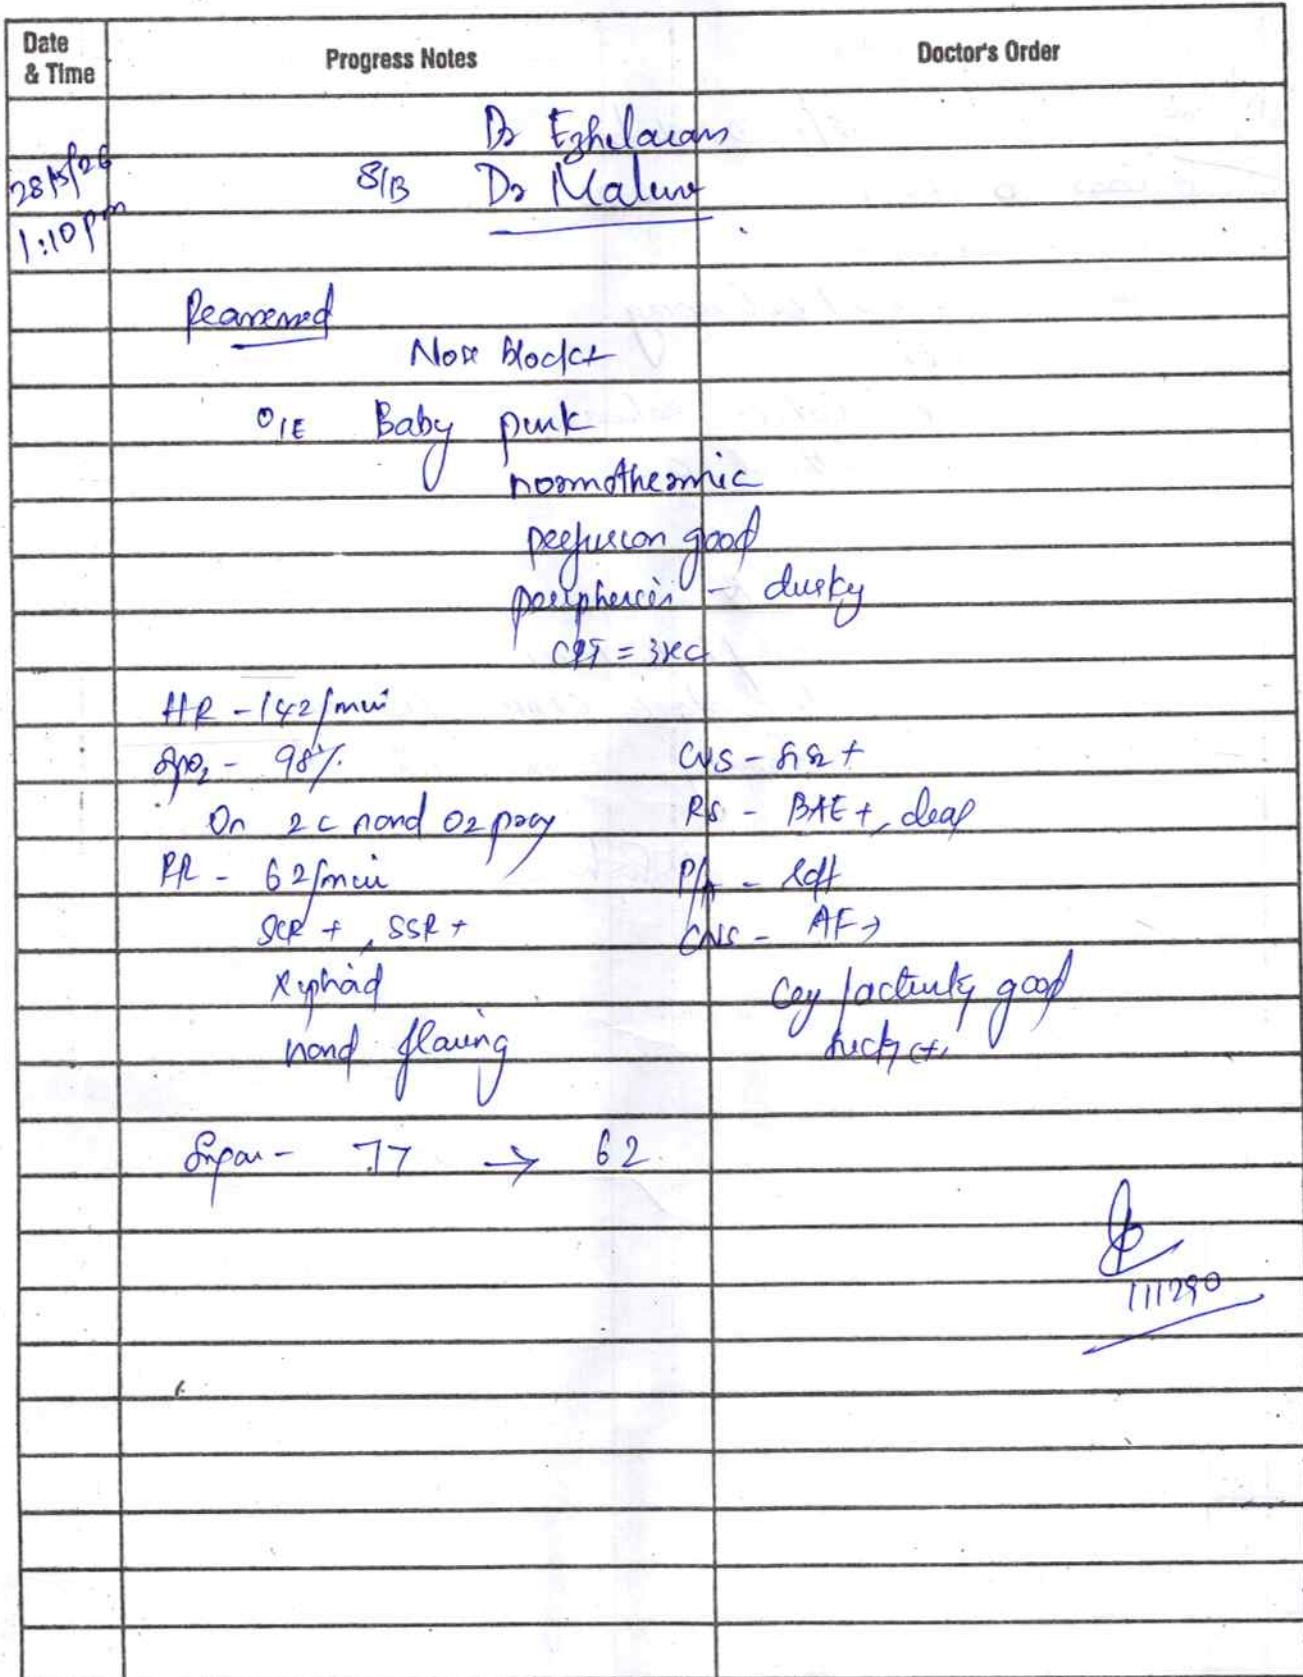 Date & Time
Progress Notes
Doctor's Order
Dr Ezhilarasn
28/5/26
S/B Dr
1:10pm
Reassessed
Nose block+
O/E Baby pink
normothermic
perfusion good
peripheries - dusky
CRT = 3sec
HR - 142/min
SpO2 - 98%
On 2L nasal O2 prong
RR - 62/min
SCR +, SSR +
Xiphoid
nasal flaring
CVS - S1S2 +
RS - BAE +, clear
P/A - soft
CNS - AF
Cry/activity good
77 → 62
111290